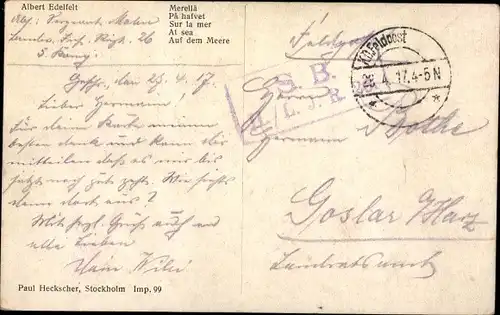 Albert Edelfelt
Merellä
På hafvet
Sur la mer
At sea
Auf dem Meere
Abs: Sergeant
Landw. Inf. Rgt. 26
5. Komp.
den 25.4.17.
Lieber Hermann!
Für deine Karte meinen
besten Dank und kann dir
mitteilen daß es mir bis
jetzt noch gut geht. Wie siehts
denn dort aus?
Mit hrzl. Gruß auch an
alle Lieben
Dein Willi
Paul Heckscher, Stockholm Imp. 99
Feldpost
S. B.
L. J. R. 26
K.D. Feldpost
25.4.17. 4-5 N
Herrn
Hermann Bothe
Goslar a/Harz
Landratsamt